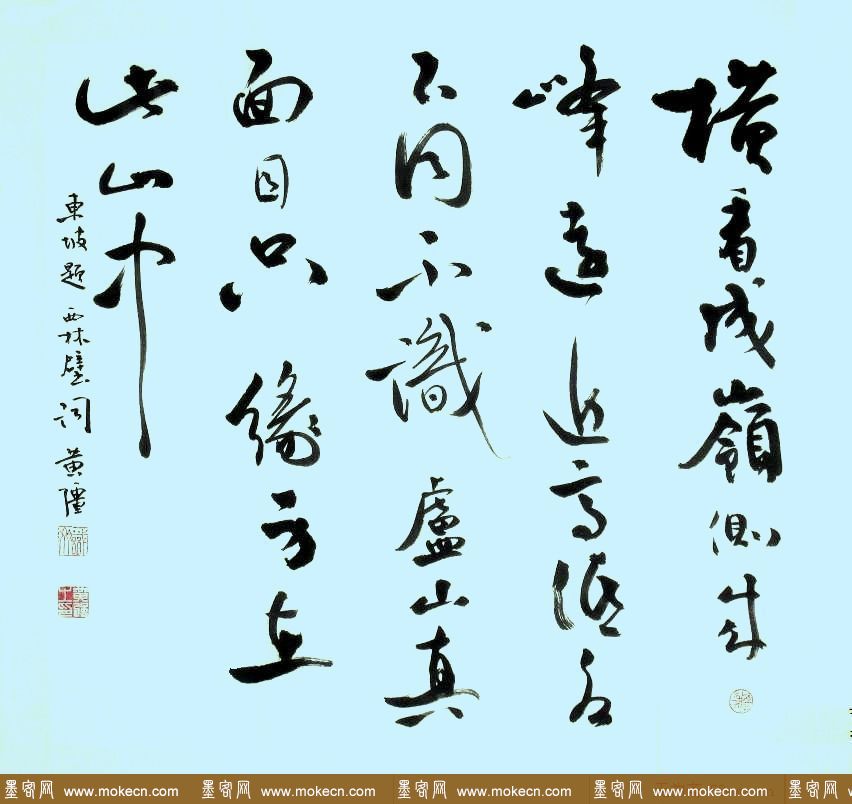 橫看成嶺側成
峰遠近高低各
不同不識盧山真
面目只緣身在
此山中
東坡題西林壁詞 黃
墨客网 www.mokecn.com 墨客网 www.mokecn.com 墨客网 www.mokecn.com 墨客网 www.mokecn.com 墨客网 w